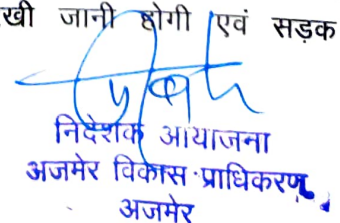 खी जानी होगी एवं सड़क
निदेशक आयाजना
अजमेर विकास प्राधिकरण
अजमेर